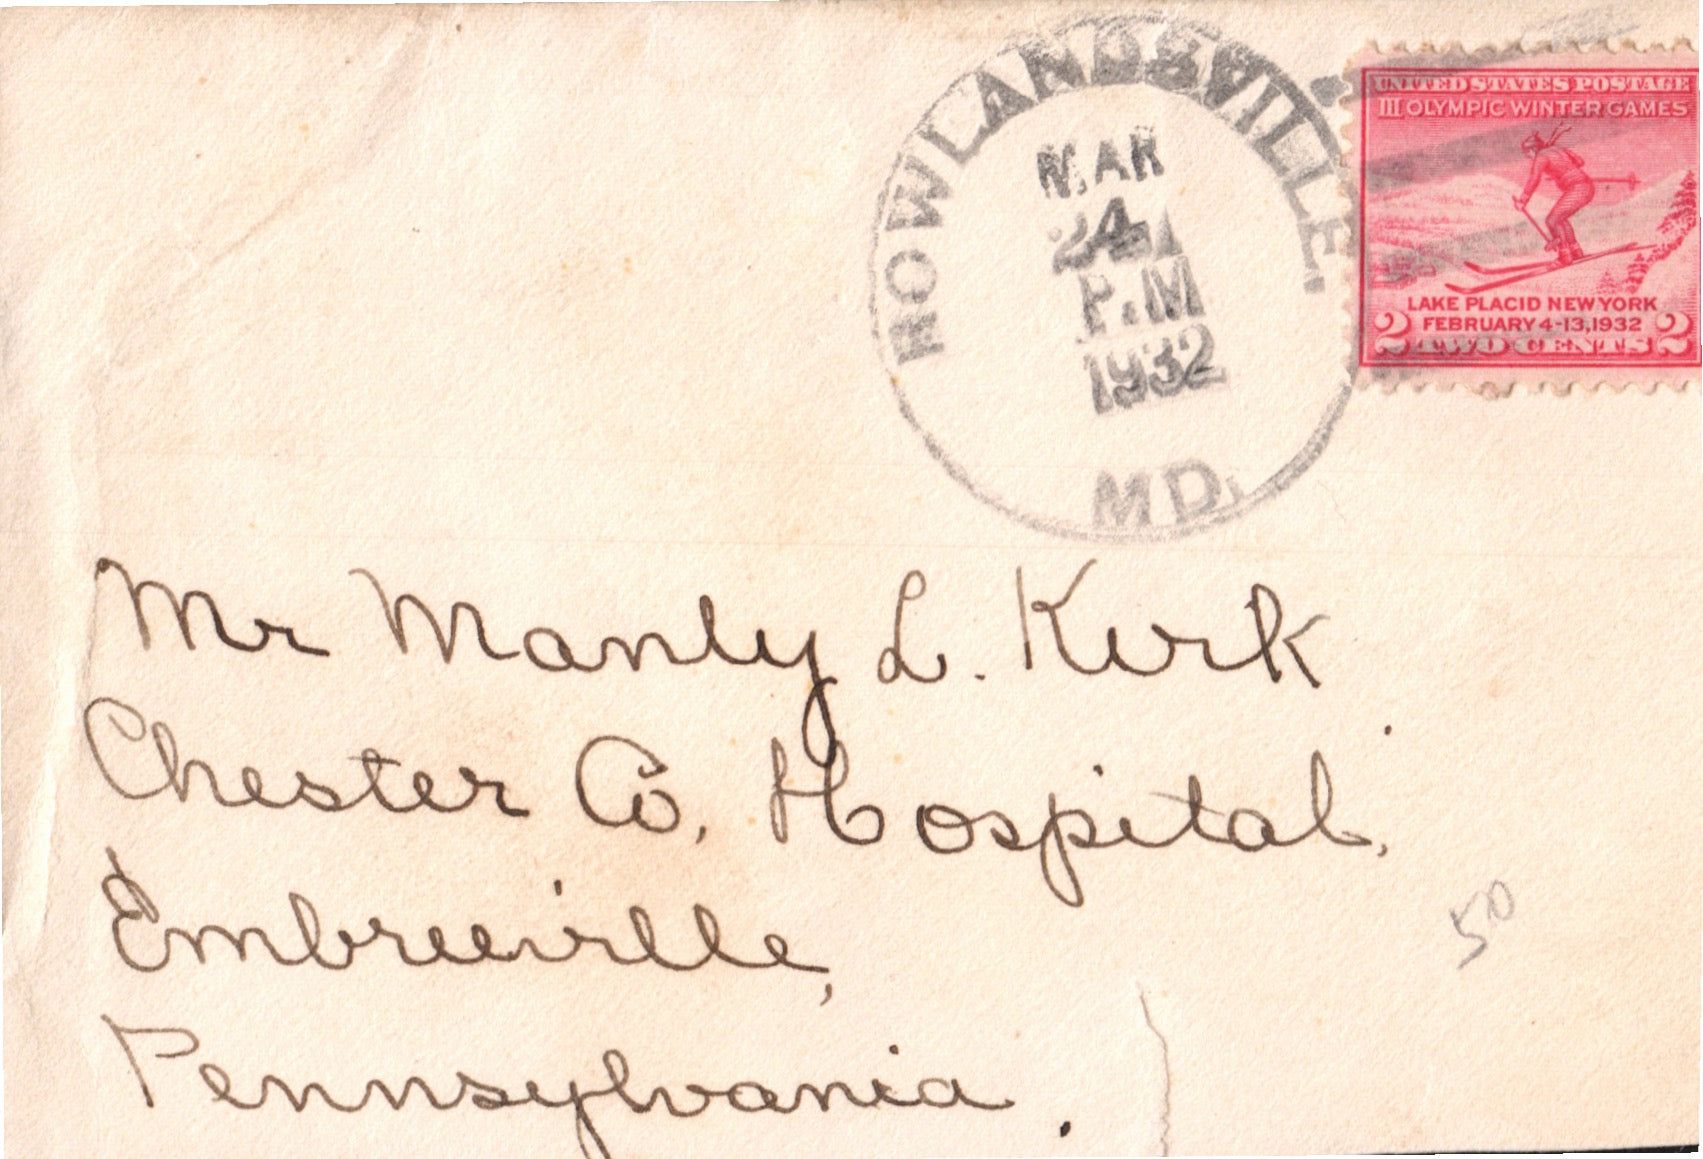 ROWLANDSVILLE.
MAR
24
P.M
1932
MD.
UNITED STATES POSTAGE
III OLYMPIC WINTER GAMES
LAKE PLACID NEW YORK
FEBRUARY 4-13, 1932
2 TWO CENTS 2
Mr Manly L. Kirk
Chester Co. Hospital,
Embreeville,
Pennsylvania.
50